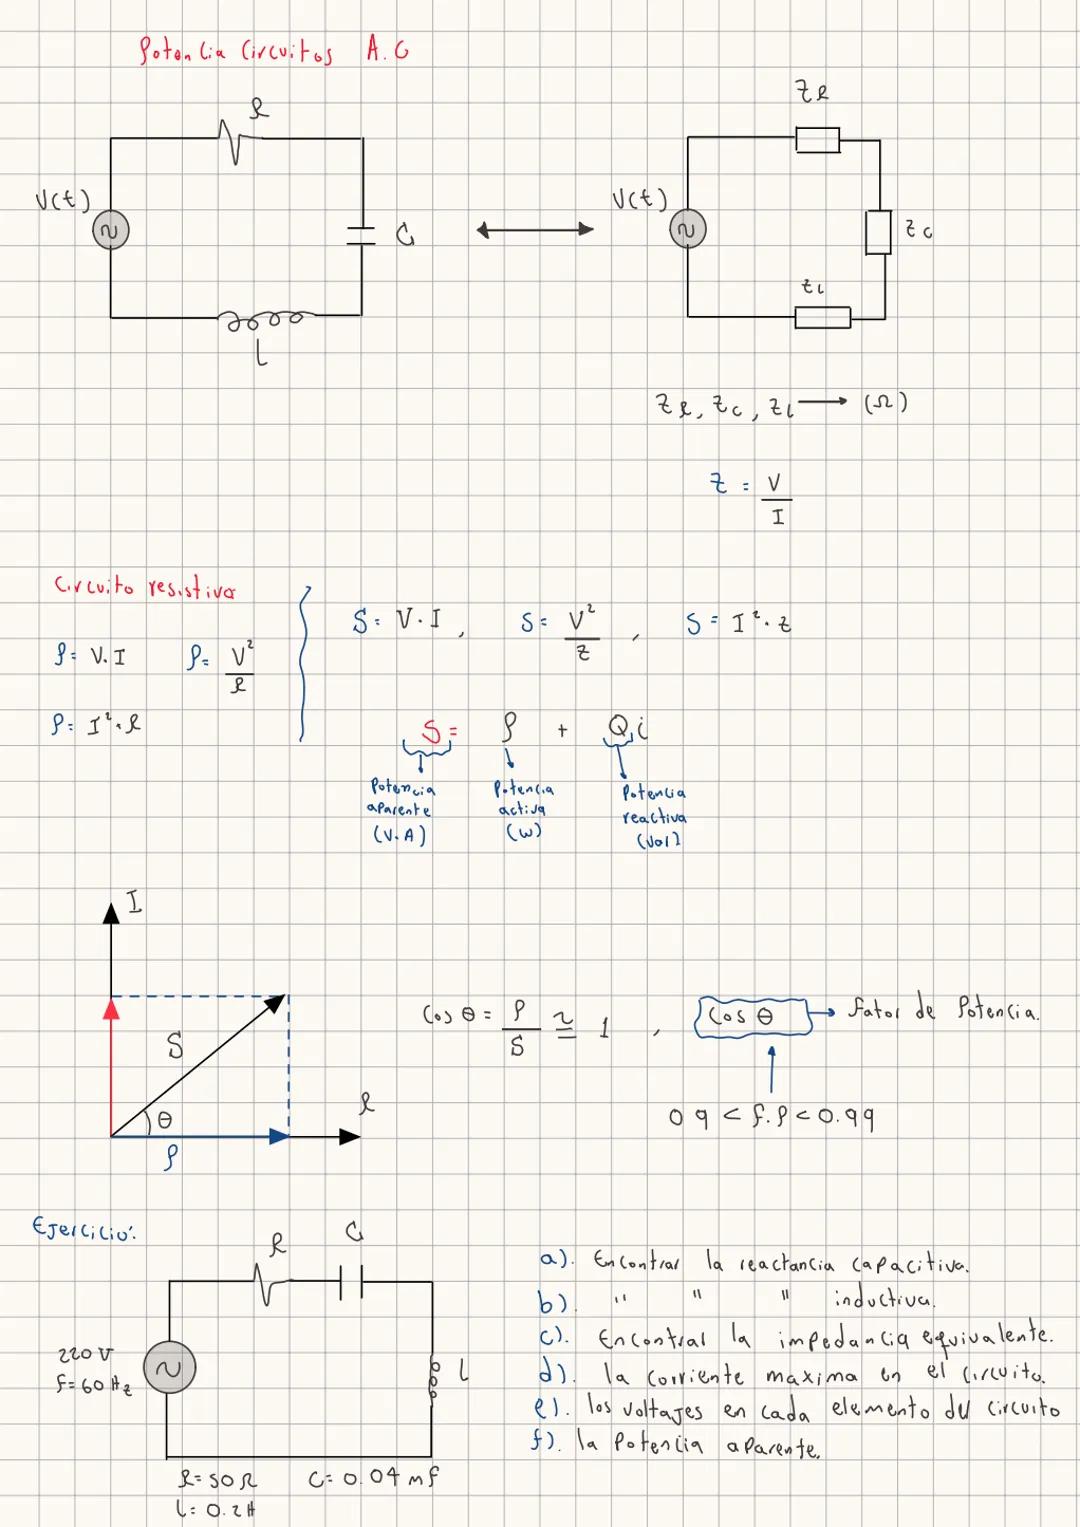 Potencia Circuitos A.C
R
V(t)
C
L
ZR
V(t)
ZC
ZL
ZR, ZC, ZL → (Ω)
Z = V/I
Circuito resistivo
P = V.I P = V²/R
P = I².R
S = V.I, S = V²/Z, S = I².Z
S = P + Qi
Potencia aparente (V.A)
Potencia activa (W)
Potencia reactiva (Vol)
I
S
θ
P
R
Cos θ = P/S ≅ 1, Cos θ → fator de Potencia.
0 9 < f.P < 0.99
Ejercicio:
R C
220 V
f= 60 Hz
L
R= 50 Ω C= 0.04 mf
L= 0.2H
a). Encontrar la reactancia capacitiva.
b). " " " inductiva.
c). Encontrar la impedancia equivalente.
d). la corriente maxima en el circuito.
e). los voltajes en cada elemento del circuito
f). la Potencia aparente.